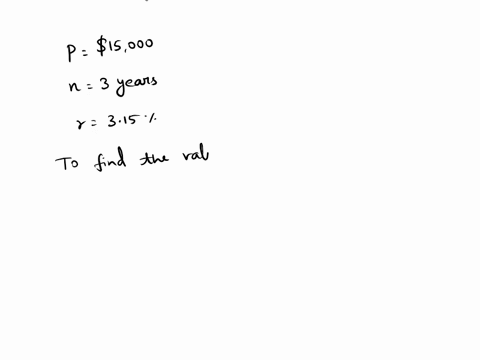 P = $15,000
n = 3 years
r = 3.15 %
To find the val